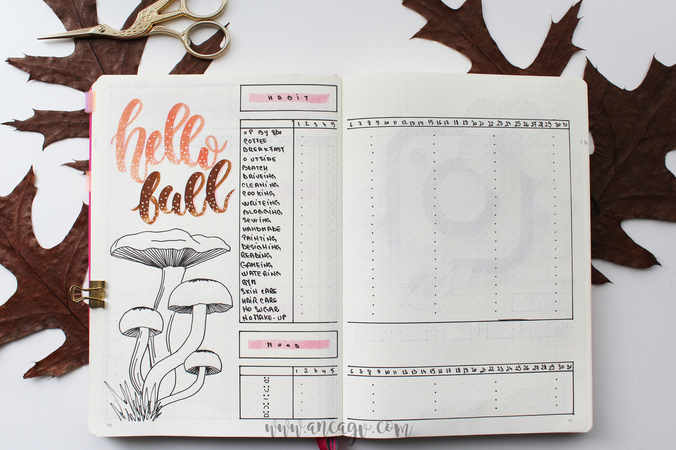 hello
fall
HABIT
1 2 3 4 5 6 7 8 9 10 11 12 13 14 15 16 17 18 19 20 21 22 23 24 25 26 27 28 29 30 31
UP BY 8:00
COFFEE
BREAKFAST
OUTSIDE
DRIVEING
CLEANING
COOKING
WRITEING
BLOGGING
SEWING
HANDMADE
PAINTING
DESIGNING
READING
GAMEING
WATERING
GYM
SKIN CARE
HAIR CARE
NO SUGAR
NO MAKE-UP
MOOD
1 2 3 4 5 6 7 8 9 10 11 12 13 14 15 16 17 18 19 20 21 22 23 24 25 26 27 28 29 30 31
www.ancagv.com